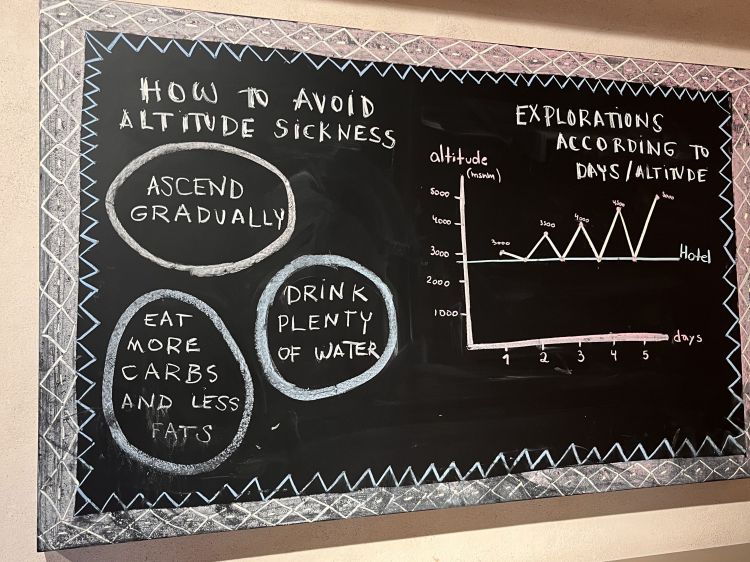 HOW TO AVOID
ALTITUDE SICKNESS
ASCEND
GRADUALLY
DRINK
PLENTY
OF WATER
EAT
MORE
CARBS
AND LESS
FATS
EXPLORATIONS
ACCORDING TO
DAYS/ALTITUDE
altitude
(msnm)
5000
4000
3000
2000
1000
3000
3500
4000
4500
5000
Hotel
days
1 2 3 4 5